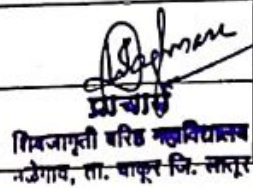 प्राचार्य
शिवजागृती वरिष्ठ महाविद्यालय
नळेगाव, ता. चाकूर जि. लातूर